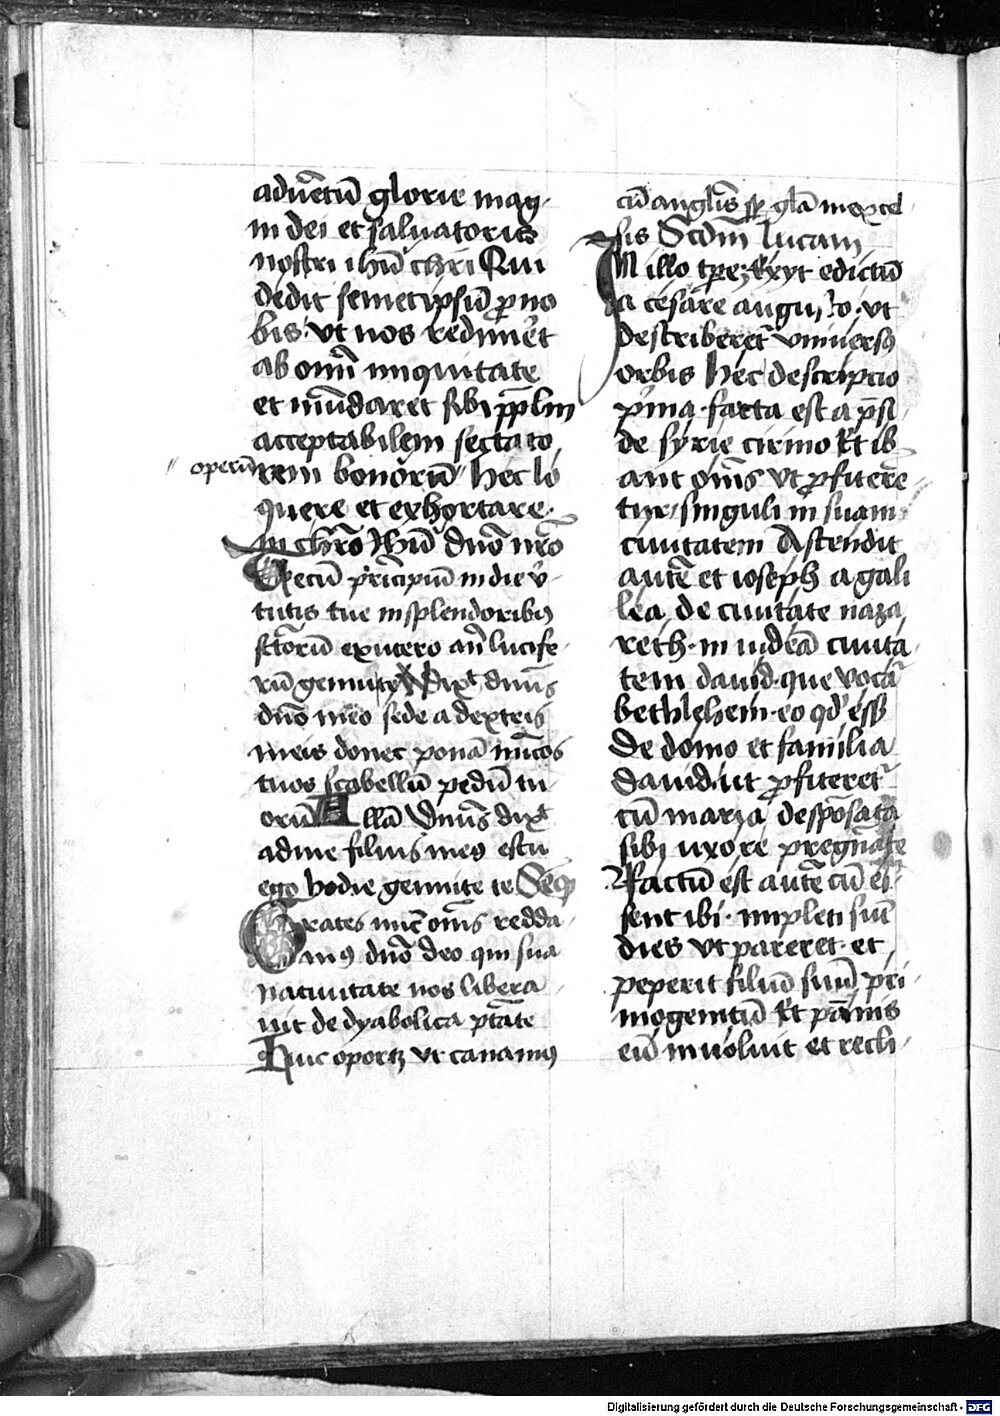 aduētū glorie mag-
ni dei et saluatoris
nostri ihū chri Qui
dedit semetipsū ꝓ no
bis· vt nos redimēt
ab omī iniquitate
et mūdaret sibi ppl̄m
acceptabilem sectato
operū
rem bonorū hec lo
quere et exhortare·
in chrō Ihū dnō nrō
Tecum principiū in die v̄-
tutis tue in splendoribꝰ
sctōrū ex utero an̄ lucife-
rū genui te V Dixt dnūs
dnō meo sede a dextris
meis donec ponā inīcos
tuos scabellū pedū tu
orū Allā Dnūs dixt
ad me filius meꝰ es tu
ego hodie genui te te Seqͥ
Grates nūc oms̄ redda-
mꝰ dnō deo qui sua
natiuitate nos libera-
uit de dyabolica ptāte
Huic oportꝫ vt canamꝰ
cū anglis̄ sp̄ glā in excel-
sis Scdm̄ Lucam
In illo tp̄e exyt edictū
a cesare augusto· vt
describeret̄ vniuersꝰ
orbis hec descripcio
p̄ma· facta est a p̄si-
de syrie cirino Et ib
ant oms̄ vt ꝓfitere-
tur singuli in suam
ciuitatem Ascendit
autē et ioseph a gali
lea de ciuitate naza
reth· in iudeā ciuita-
tem dauid· que vocat̄
bethlehem· eo qd̓ ess̄
de domo et familia
dauid· ut ꝓfiteret̄
cū maria desponsata
sibi uxore pregnāte
Factū est autē cū es-
sent ibi· impleti sūt
dies vt pareret· et
peperit filiū suū pri-
mogenitū Et pānis
eū inuoluit et recli-
Digitalisierung gefördert durch die Deutsche Forschungsgemeinschaft - DFG